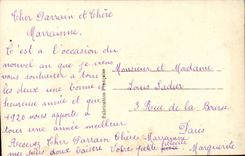 Cher Parrain et Chère
Marraine.
C'est à l'occasion du
nouvel an que je viens
vous souhaiter à tous
les deux une bonne et
heureuse année et que
1920 nous apporte à
tous une année meilleure
Recevez Cher Parrain Chère Marraine
mes plus doux baisers Votre petite filleule
Marguerite
Fabrication Française
Monsieur et Madame
Louis Sadier
3 Rue de la Bourse
Paris